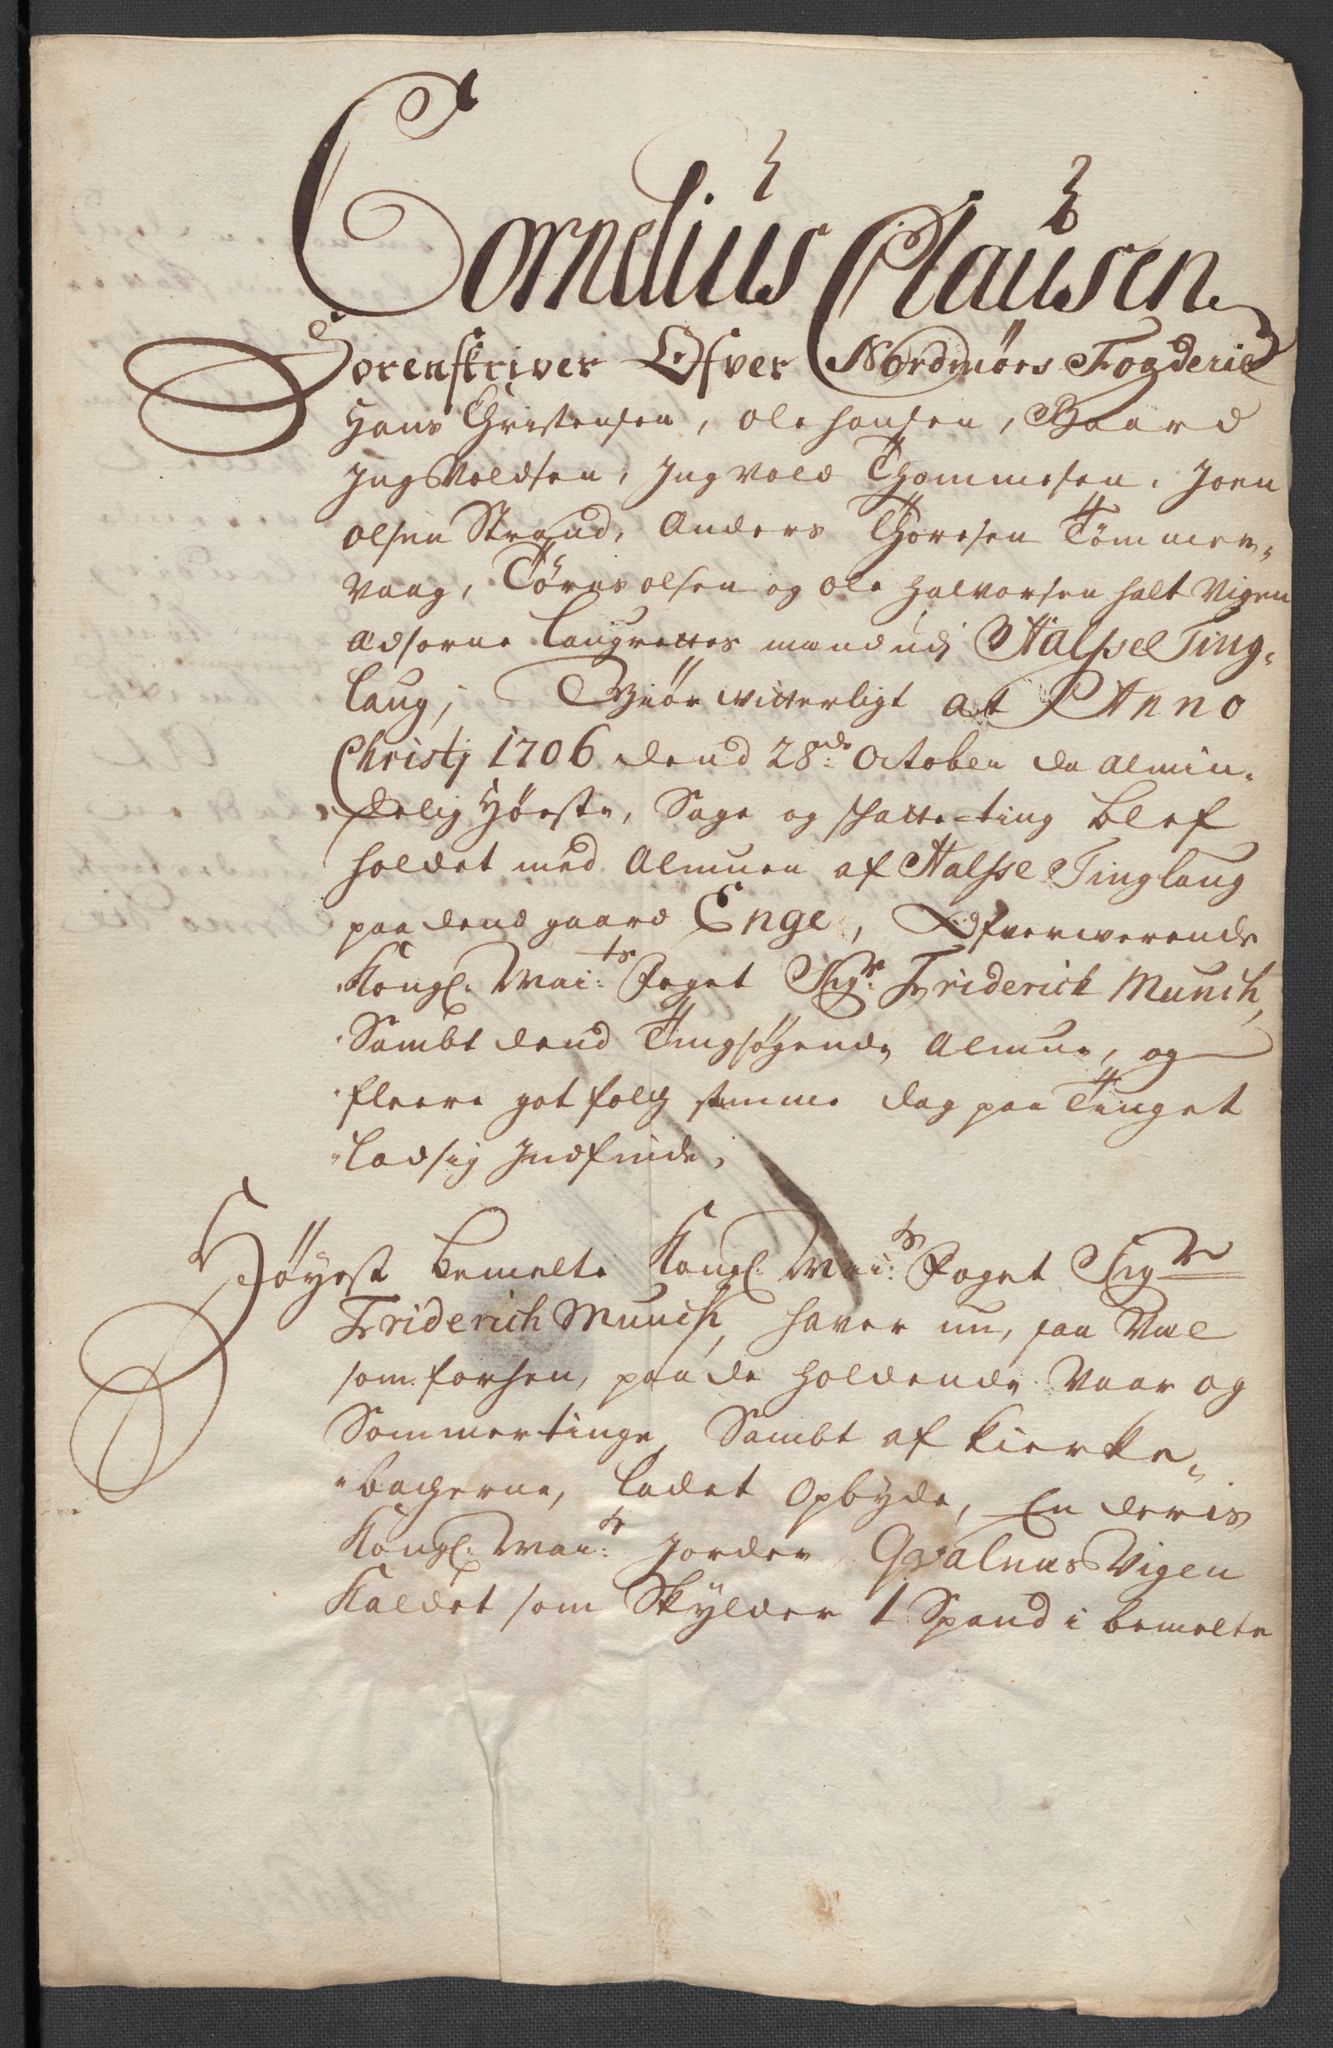 Cornelius Clausen
Sorenskriver Ofver Nordmørs Fogderie
Hans Christensen, Ole Hansen, Baard
Ingvoldsen, Ingvold Thommesen, Joen
Olsen Strand, Anders Thoresen Tømmer-
vaag, Tøres Olsen og Ole Halvorsen halt Vigen
Edsorne Laugrettes mænd udj Halsse Ting-
laug, Giør witterligt at Anno
Christj 1706 dend 28de October da almin-
delig Høeste, Sage og schatte-ting blef
holdet med Almuen af Halsse Tinglaug
paa dend gaard Enge, Ofverwerende
Kongl. Mai:ts Foget Sigr. Friderich Munch,
Sambt dend Tingsøgende Almue, og
fleere got folch samme dag paa Tinget
lod sig Indfinde,
Høyest bemelte Kongl. Mai:ts Foget Sigr
Friderich Munch, haver nu, saa vel
som forhen, paa de holdende Vaar og
Sommertinge, Sambt af Kierke-
bacherne, ladet Opbyde, En deris
Kongl. Mai:ts Jorder, Qvalnes Vigen
Kaldet som Skylder 1 Spand i bemelte